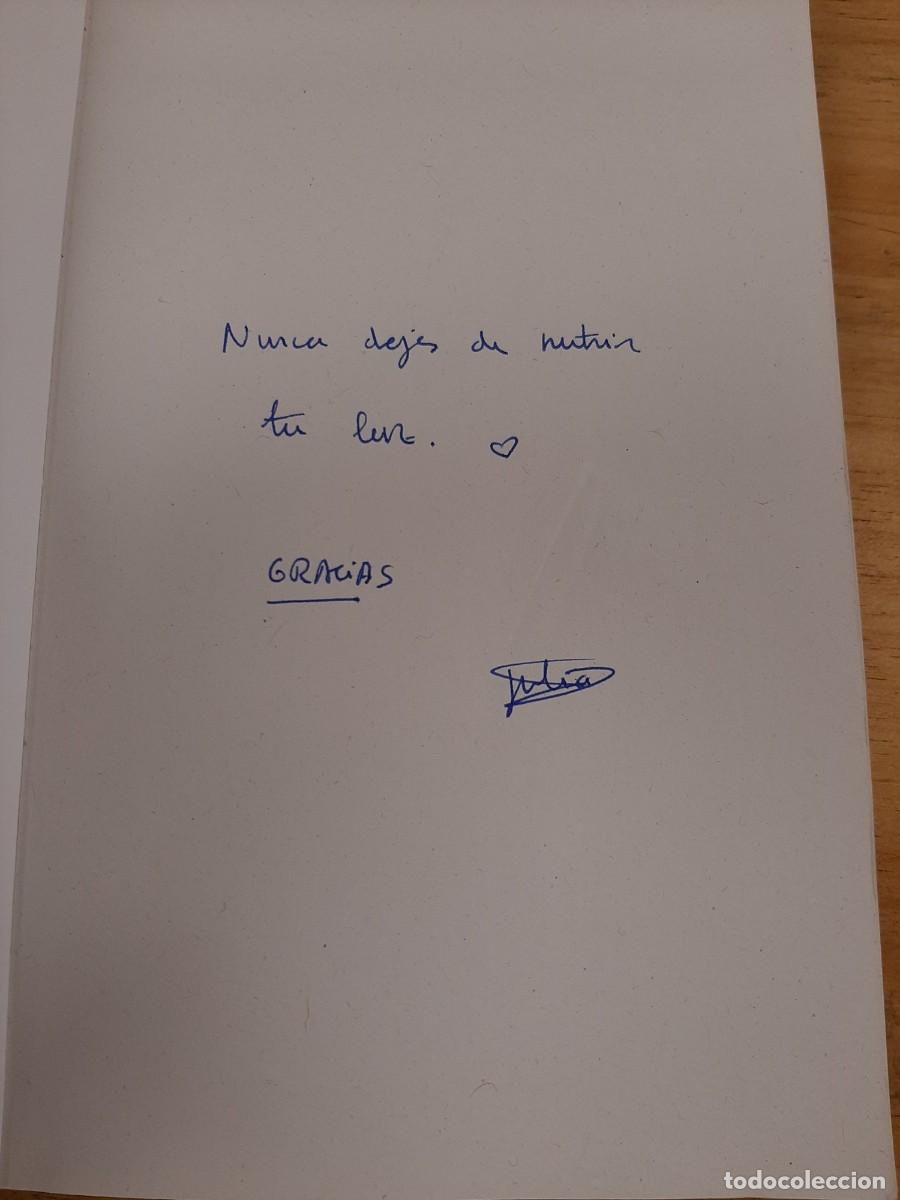 Nunca dejes de nutrir
tu luz. ♡
GRACiAS
Julia
todocoleccion